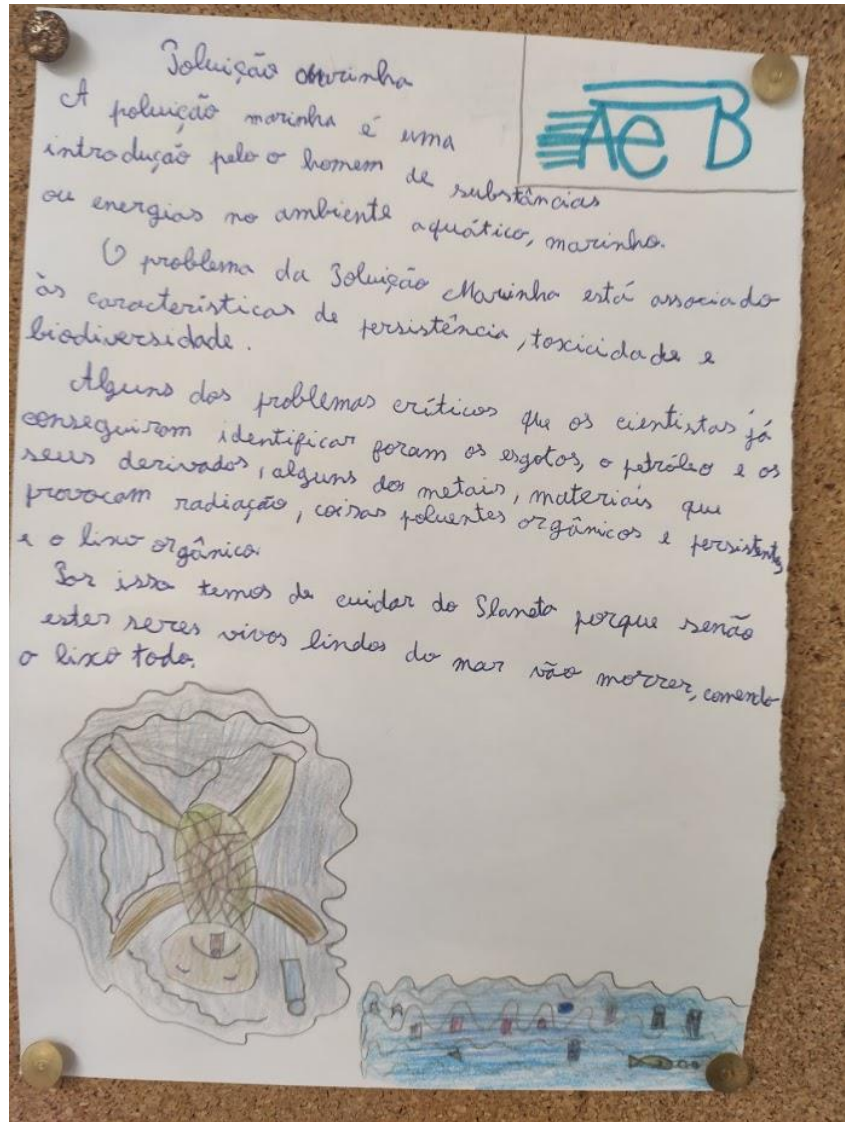 Poluição Marinha
AeB
A poluição marinha é uma
introdução pelo o homem de substâncias
ou energias no ambiente aquático, marinho.
O problema da Poluição Marinha está associado
às características de persistência, toxicidade e
biodiversidade.
Alguns dos problemas críticos que os cientistas já
conseguiram identificar foram os esgotos, o petróleo e os
seus derivados, alguns dos metais, materiais que
provocam radiação, coisas poluentes orgânicos e persistentes
e o lixo orgânico.
Por isso temos de cuidar do Planeta porque senão
estes seres vivos lindos do mar vão morrer, comendo
o lixo todo.